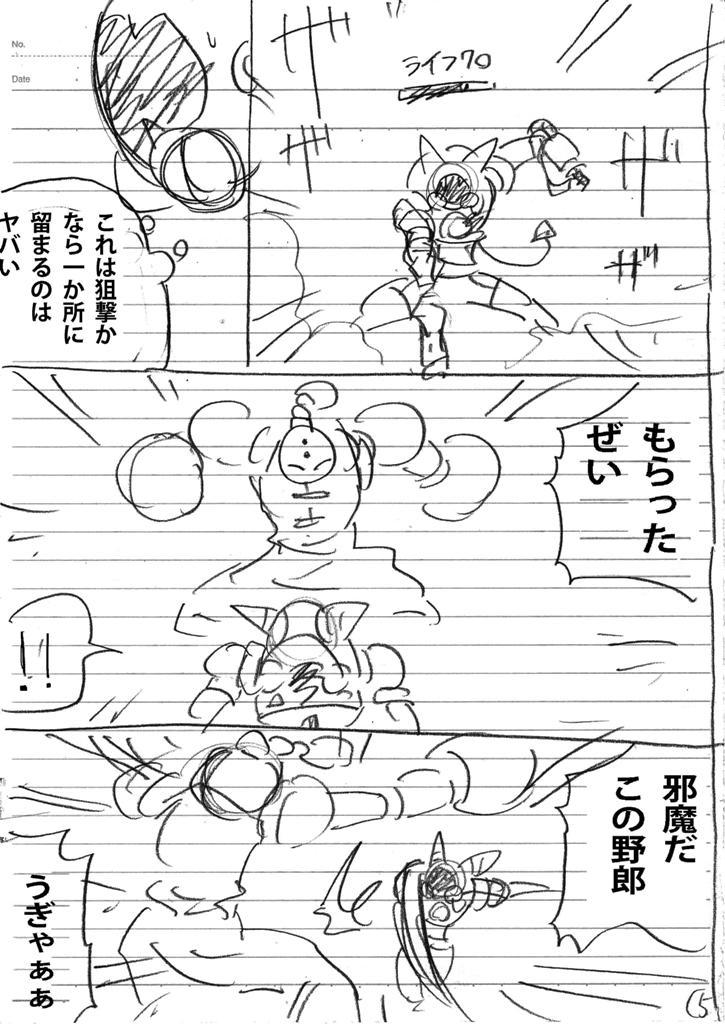 No.
Date
ライフ70
ザザ
ザザ
ザザ
ザザ
これは狙撃か
なら一か所に
留まるのは
ヤバい
もらった
ぜい
!!
邪魔だ
この野郎
うぎゃぁぁ
5